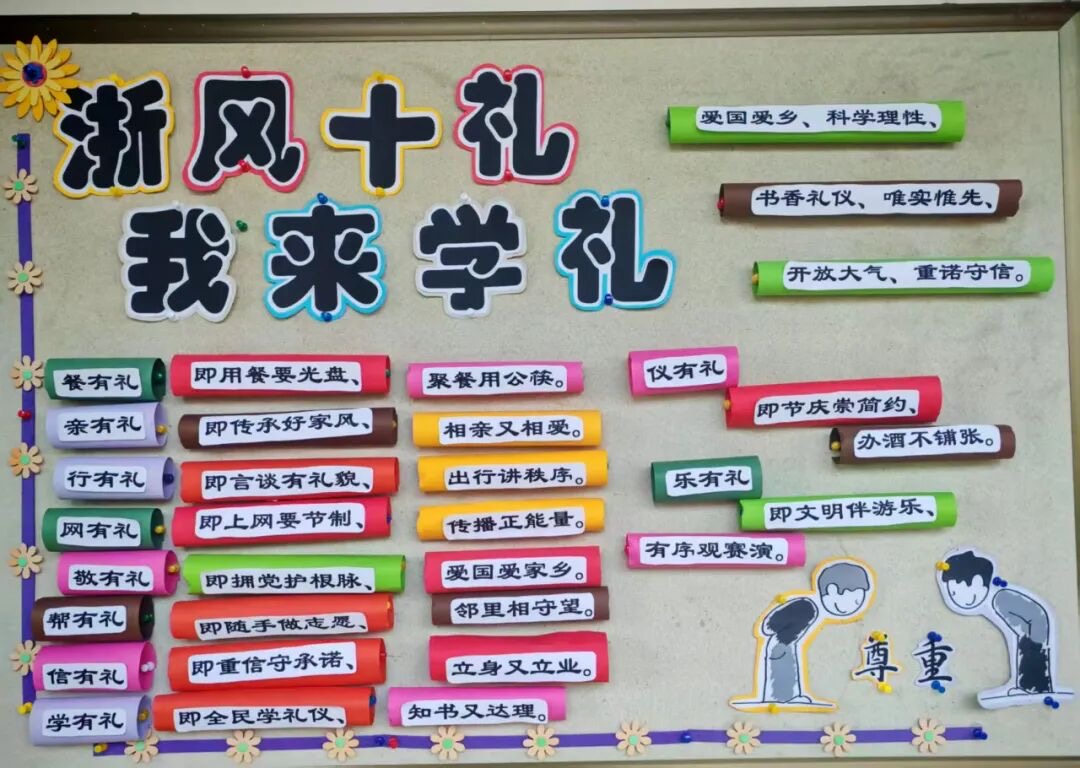 浙风十礼
我来学礼
爱国爱乡、科学理性、
书香礼仪、唯实惟先、
开放大气、重诺守信。
餐有礼 即用餐要光盘、 聚餐用公筷。
亲有礼 即传承好家风、 相亲又相爱。
行有礼 即言谈有礼貌、 出行讲秩序。
网有礼 即上网要节制、 传播正能量。
敬有礼 即拥党护根脉、 爱国爱家乡。
帮有礼 即随手做志愿、 邻里相守望。
信有礼 即重信守承诺、 立身又立业。
学有礼 即全民学礼仪、 知书又达理。
仪有礼
即节庆崇简约、
办酒不铺张。
乐有礼
即文明伴游乐、
有序观赛演。
尊重